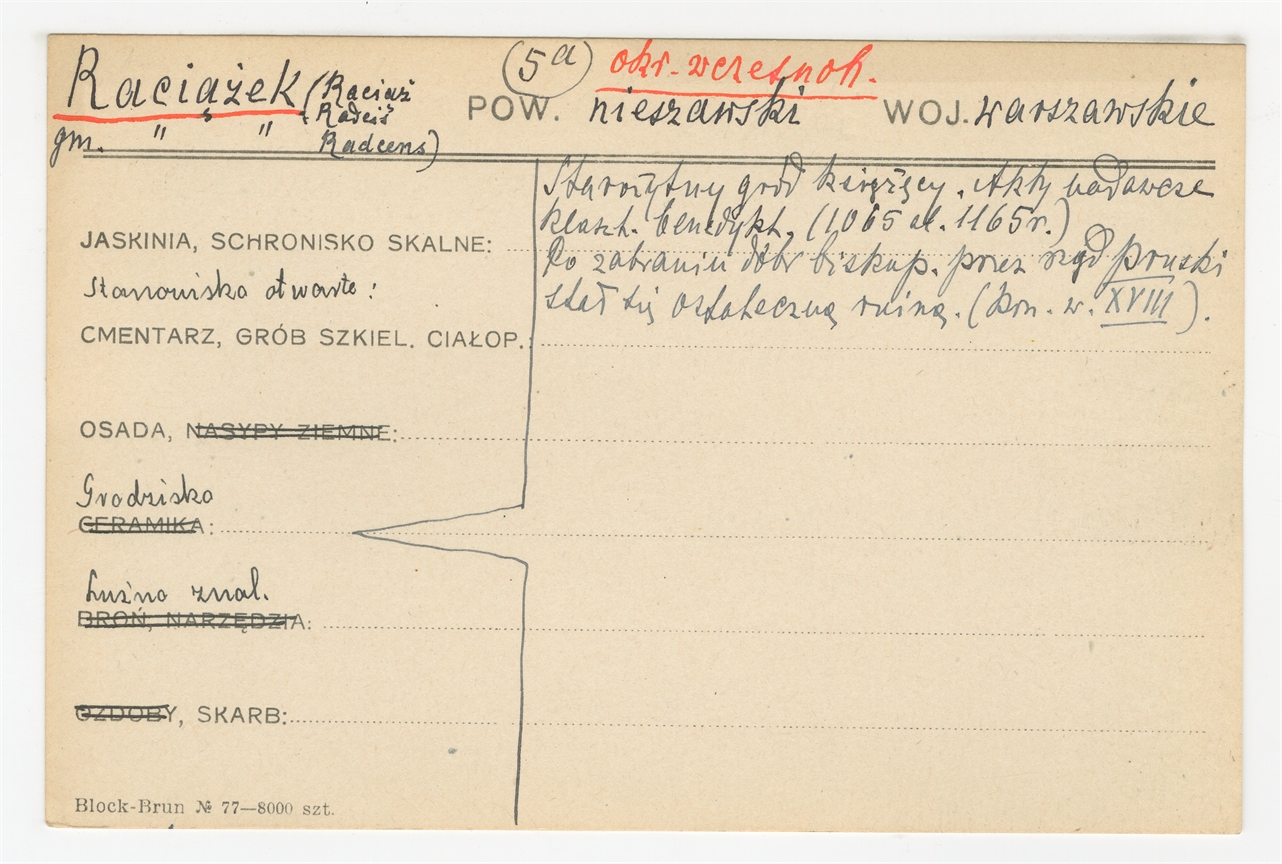 Raciążek (Raciąż (5a) okr. wczesnoh.
Radciś POW. nieszawski WOJ. warszawskie
gm. " " Radcens)
Starożytny gród książęcy. Akty nadawcze
klaszt. benedykt. (1065 al. 1165r.)
JASKINIA, SCHRONISKO SKALNE:
Po zabraniu dóbr biskup. przez rząd pruski
Stanowisko otwarte:
stał się ostateczną ruiną. (kon. w. XVIII).
CMENTARZ, GRÓB SZKIEL. CIAŁOP.:
OSADA, NASYPY ZIEMNE:
Grodzisko
CERAMIKA:
Luźno znal.
BROŃ, NARZĘDZIA:
OZDOBY, SKARB:
Block-Brun № 77—8000 szt.